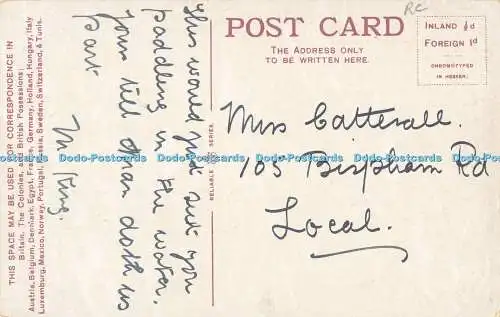 THIS SPACE MAY BE USED FOR CORRESPONDENCE IN
Britain, The Colonies, and British Possessions;
Austria, Belgium, Denmark, Egypt, France, Germany, Holland, Hungary, Italy
Luxemburg, Mexico, Norway, Portugal, Russia, Sweden, Switzerland, & Tunis.
This would just suit you
paddling in the water.
Yours till death doth us
part
M. King.
RELIABLE SERIES.
POST CARD
THE ADDRESS ONLY
TO BE WRITTEN HERE.
RC
INLAND ½d
FOREIGN 1d
CHROMOTYPED
IN HESSEN.
Miss Catterall.
105 Bispham Rd
Local.
Dodo-Postcards Dodo-Postcards Dodo-Postcards Dodo-Postcards Dodo-Postcards